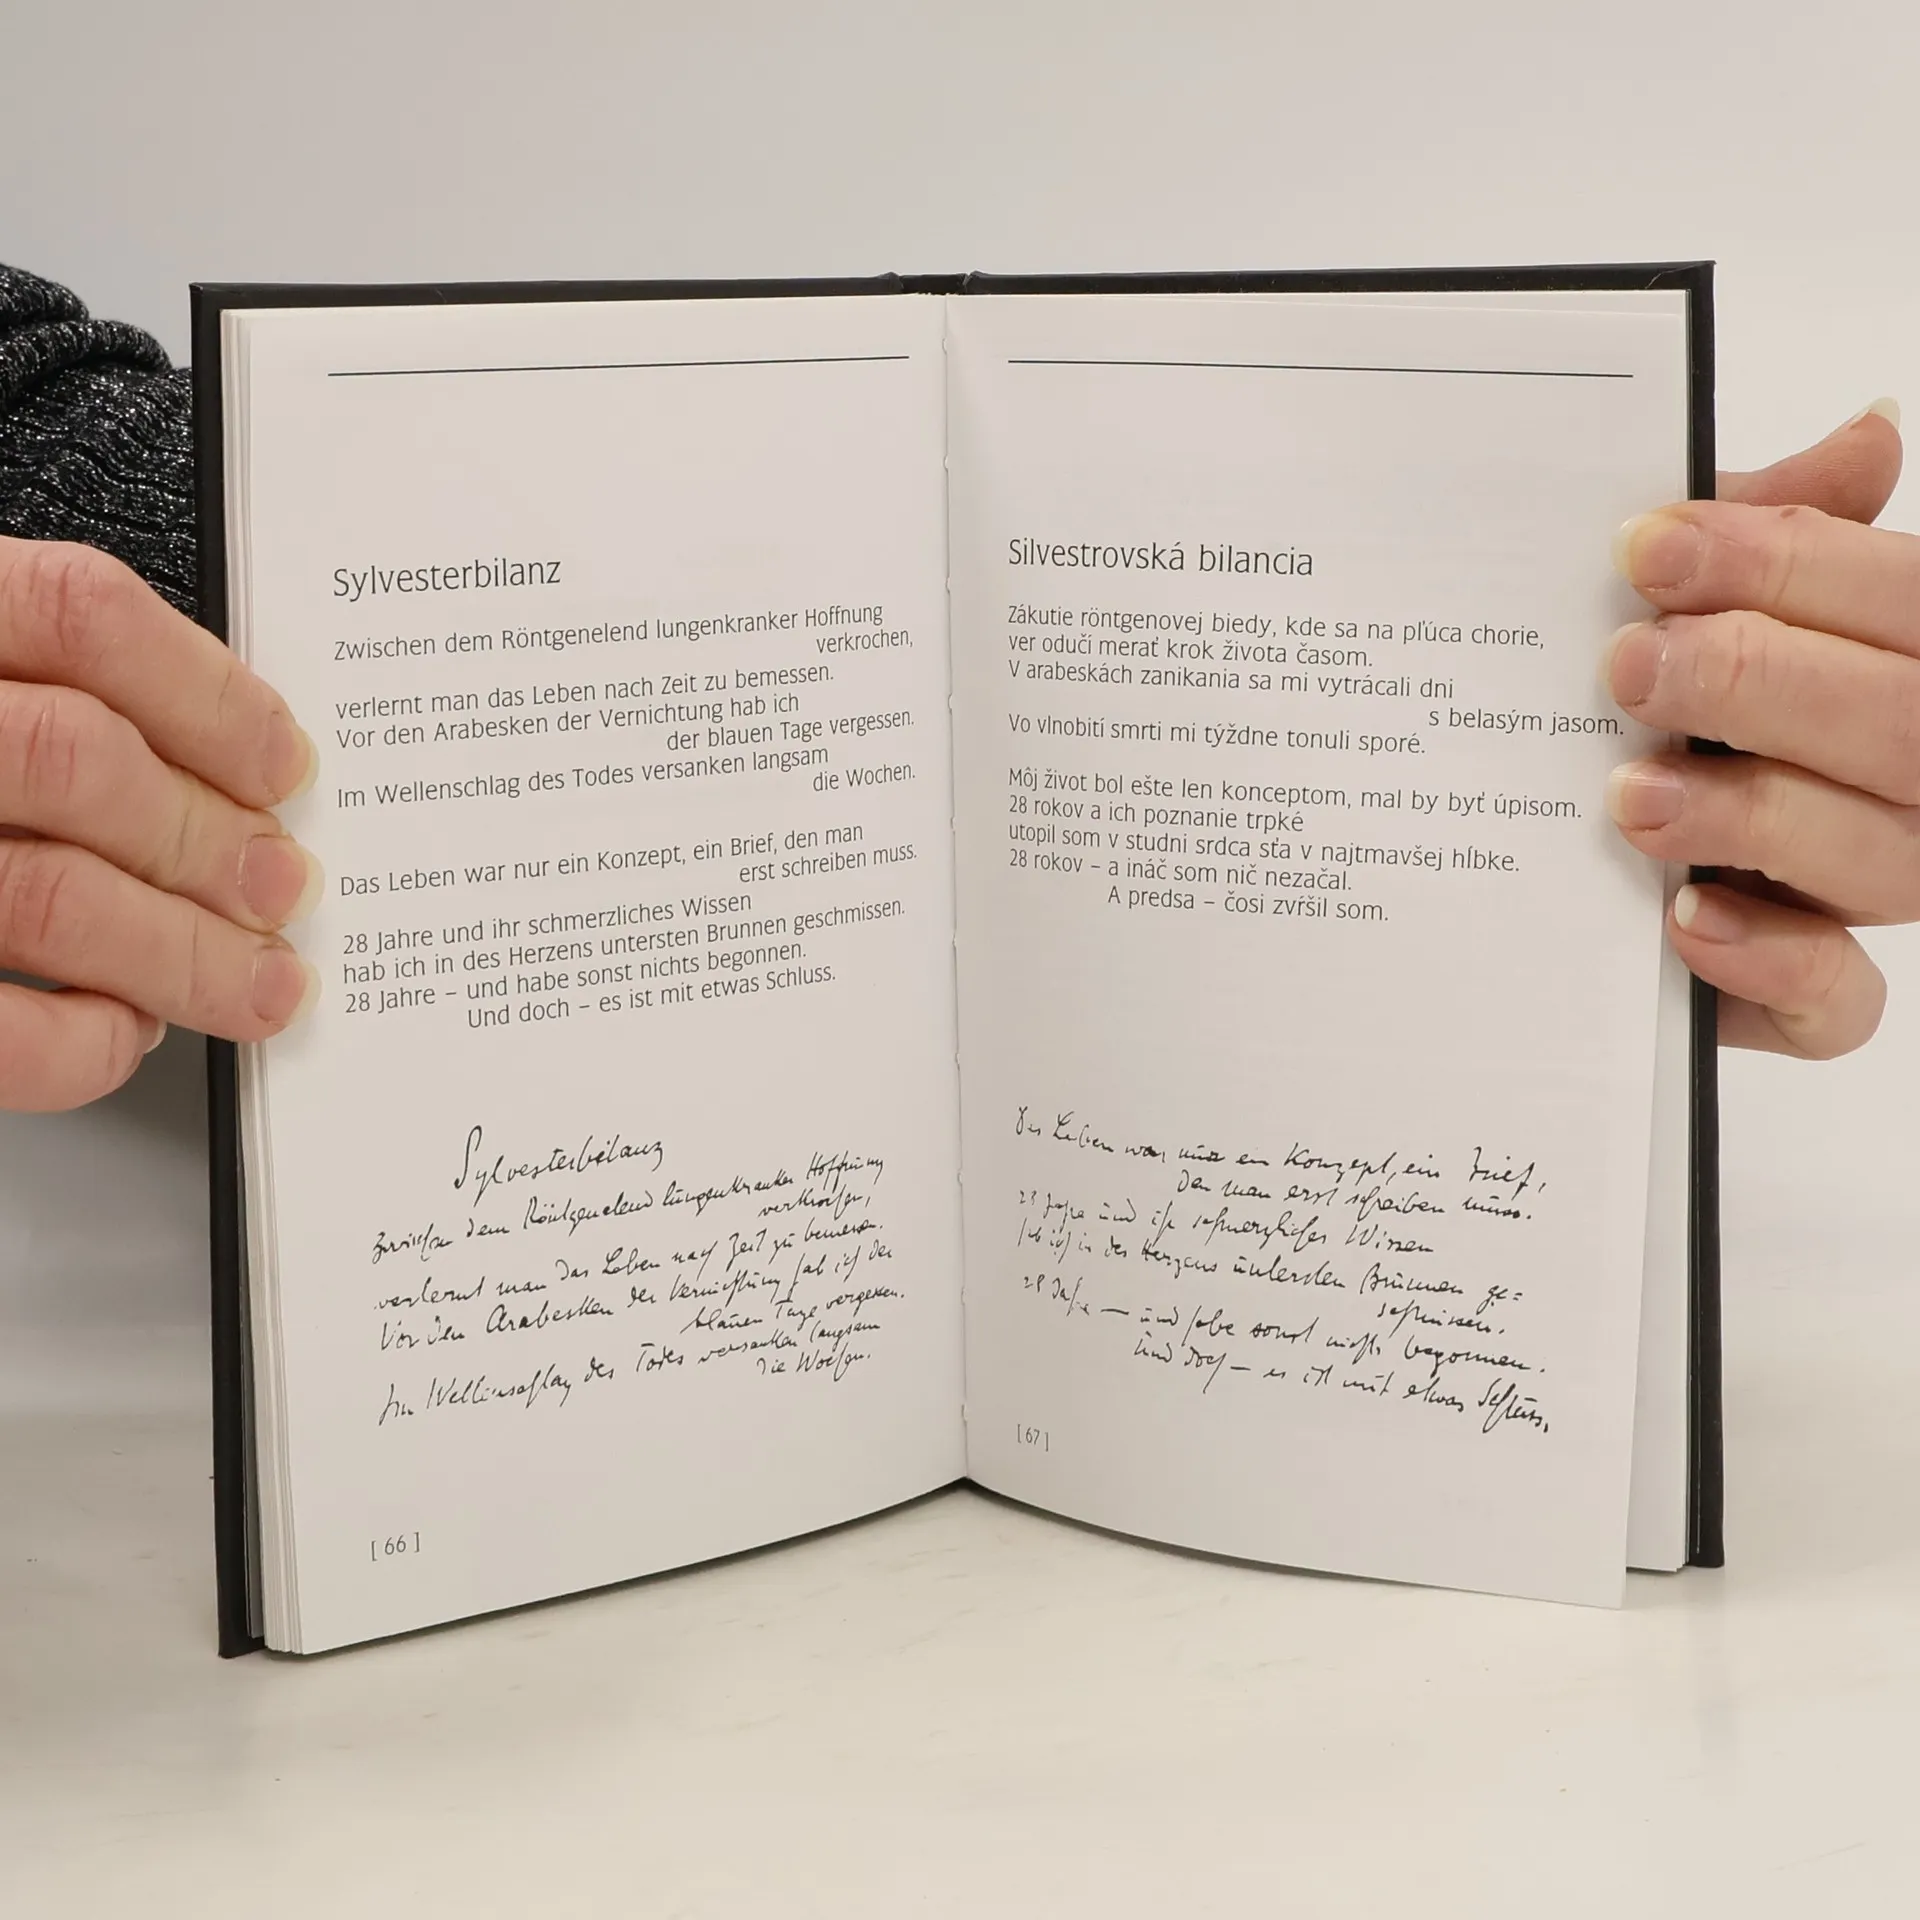 Sylvesterbilanz
Zwischen dem Röntgenelend lungenkranker Hoffnung
verkrochen,
verlernt man das Leben nach Zeit zu bemessen.
Vor den Arabesken der Vernichtung hab ich
der blauen Tage vergessen.
Im Wellenschlag des Todes versanken langsam
die Wochen.
Das Leben war nur ein Konzept, ein Brief, den man
erst schreiben muss.
28 Jahre und ihr schmerzliches Wissen
hab ich in des Herzens untersten Brunnen geschmissen.
28 Jahre – und habe sonst nichts begonnen.
Und doch – es ist mit etwas Schluss.
Sylvesterbilanz
Zwischen dem Röntgenelend lungenkranker Hoffnung
verkrochen,
verlernt man das Leben nach Zeit zu bemessen.
Vor den Arabesken der Vernichtung hab ich der
blauen Tage vergessen.
Im Wellenschlag des Todes versanken langsam
die Wochen.
[ 66 ]
Silvestrovská bilancia
Zákutie röntgenovej biedy, kde sa na pľúca chorie,
ver odučí merať krok života časom.
V arabeskách zanikania sa mi vytrácali dni
s belasým jasom.
Vo vlnobití smrti mi týždne tonuli sporé.
Môj život bol ešte len konceptom, mal by byť úpisom.
28 rokov a ich poznanie trpké
utopil som v studni srdca sťa v najtmavšej hĺbke.
28 rokov – a ináč som nič nezačal.
A predsa – čosi zvŕšil som.
Das Leben war nur ein Konzept, ein Brief,
den man erst schreiben muss.
28 Jahre und ihr schmerzliches Wissen
hab ich in des Herzens untersten Brunnen ge=
schmissen.
28 Jahre — und habe sonst nichts begonnen.
Und doch — es ist mit etwas Schluss.
[ 67 ]